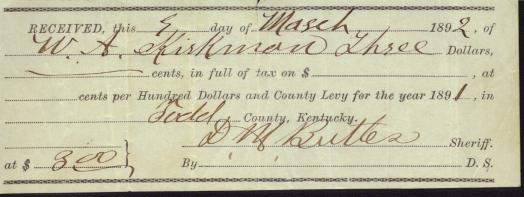 RECEIVED, this 5 day of March 1892, of
W. A. Kirkman Three Dollars,
cents, in full of tax on $ , at
cents per Hundred Dollars and County Levy for the year 1891, in
Todd County, Kentucky.
D M Butler Sheriff.
at $ 3.00 } By D. S.